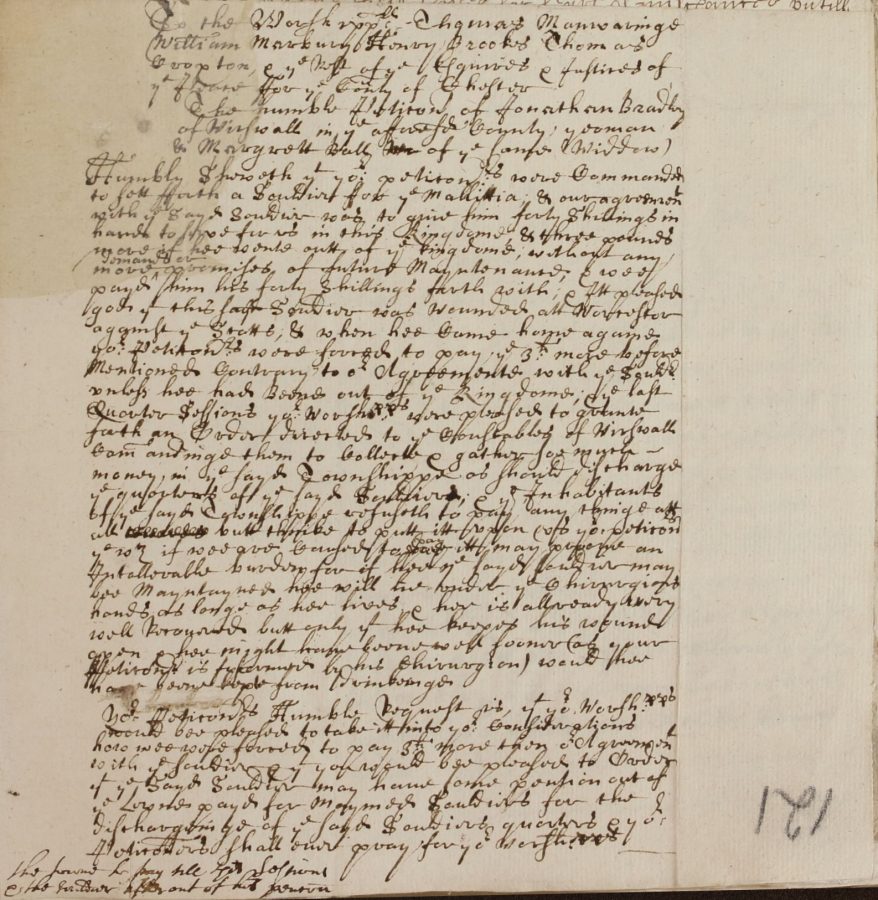 To the Worshippll Thomas Manwaringe
William Marbury Henry Brookes Thomas
Croxton, & ye Rest of ye Esquires & Justices of
ye Peace for ye County of Chester
The humble Peticon of Jonathan Bradley
of Wirswall in ye aforesd County, yeoman
& Margrett Bally of ye same (Widdow)
Humbly Sheweth yt yor peticonrs were Commanded
to sett forth a Souldier for ye Mallittia, & our agreement
with ye Sayd Souldier was to give him forty Shillings in
hand to serve for us in this Kingdome & three pounds
more if hee wente outt of ye Kingdome, without any
more demands or promises of future Mayntenance, & wee
payd him his forty Shillings forth with, Itt pleased
god yt this Souldier was Wounded att Worcester
against ye Scotts, & when hee Came home againe
yor Peticonrs were forced to pay ye 3li more before
Mentioned Contrary to or Agreemente with ye Souldr
unless hee had Beene out of ye Kingdome, ye last
Quarter Sessions yor Worshipps were pleased to grante
forth an Order directed to ye Constables of Wirswall
Comandinge them to Collecte & gather soe much
money in ye sayd Townshippe as should discharge
ye quarters of ye sayd Souldier, & ye Inhabitants
of ye sayd Townshippe refuseth to pay any thinge att
all butt thrike to putt itt upon us yor peticonrs
ye wch if wee are Caused to pay itt may prove an
Intollerable burden for if hee ye sayd souldier may
bee Mayntayned hee will lie under ye Chirurgions
hands as longe as hee lives, & hee is allready very
well Recovered butt only yt hee keepes his wound
open & hee might have beene well sooner (as your
Peticonrs is Informed by his Chirurgion) would hee
have beene kepte from drinkeinge
Yor Peticonrs Humble Request is, yt yor Worshipps
would bee pleased to take itt into yor Considerations
how wee were forced to pay 3li more then or Agreement
with ye souldier & yt you would bee pleased to Order
yt ye Sayd Souldier may have some pention out of
ye Leynes payd for Maymed Souldiers for the
dischargeinge of ye sayd Souldiers quarters & yor
Peticoners shall ever pray for yor Worshipps
the towne to pay till this session
& the souldier after out of his pencon
121